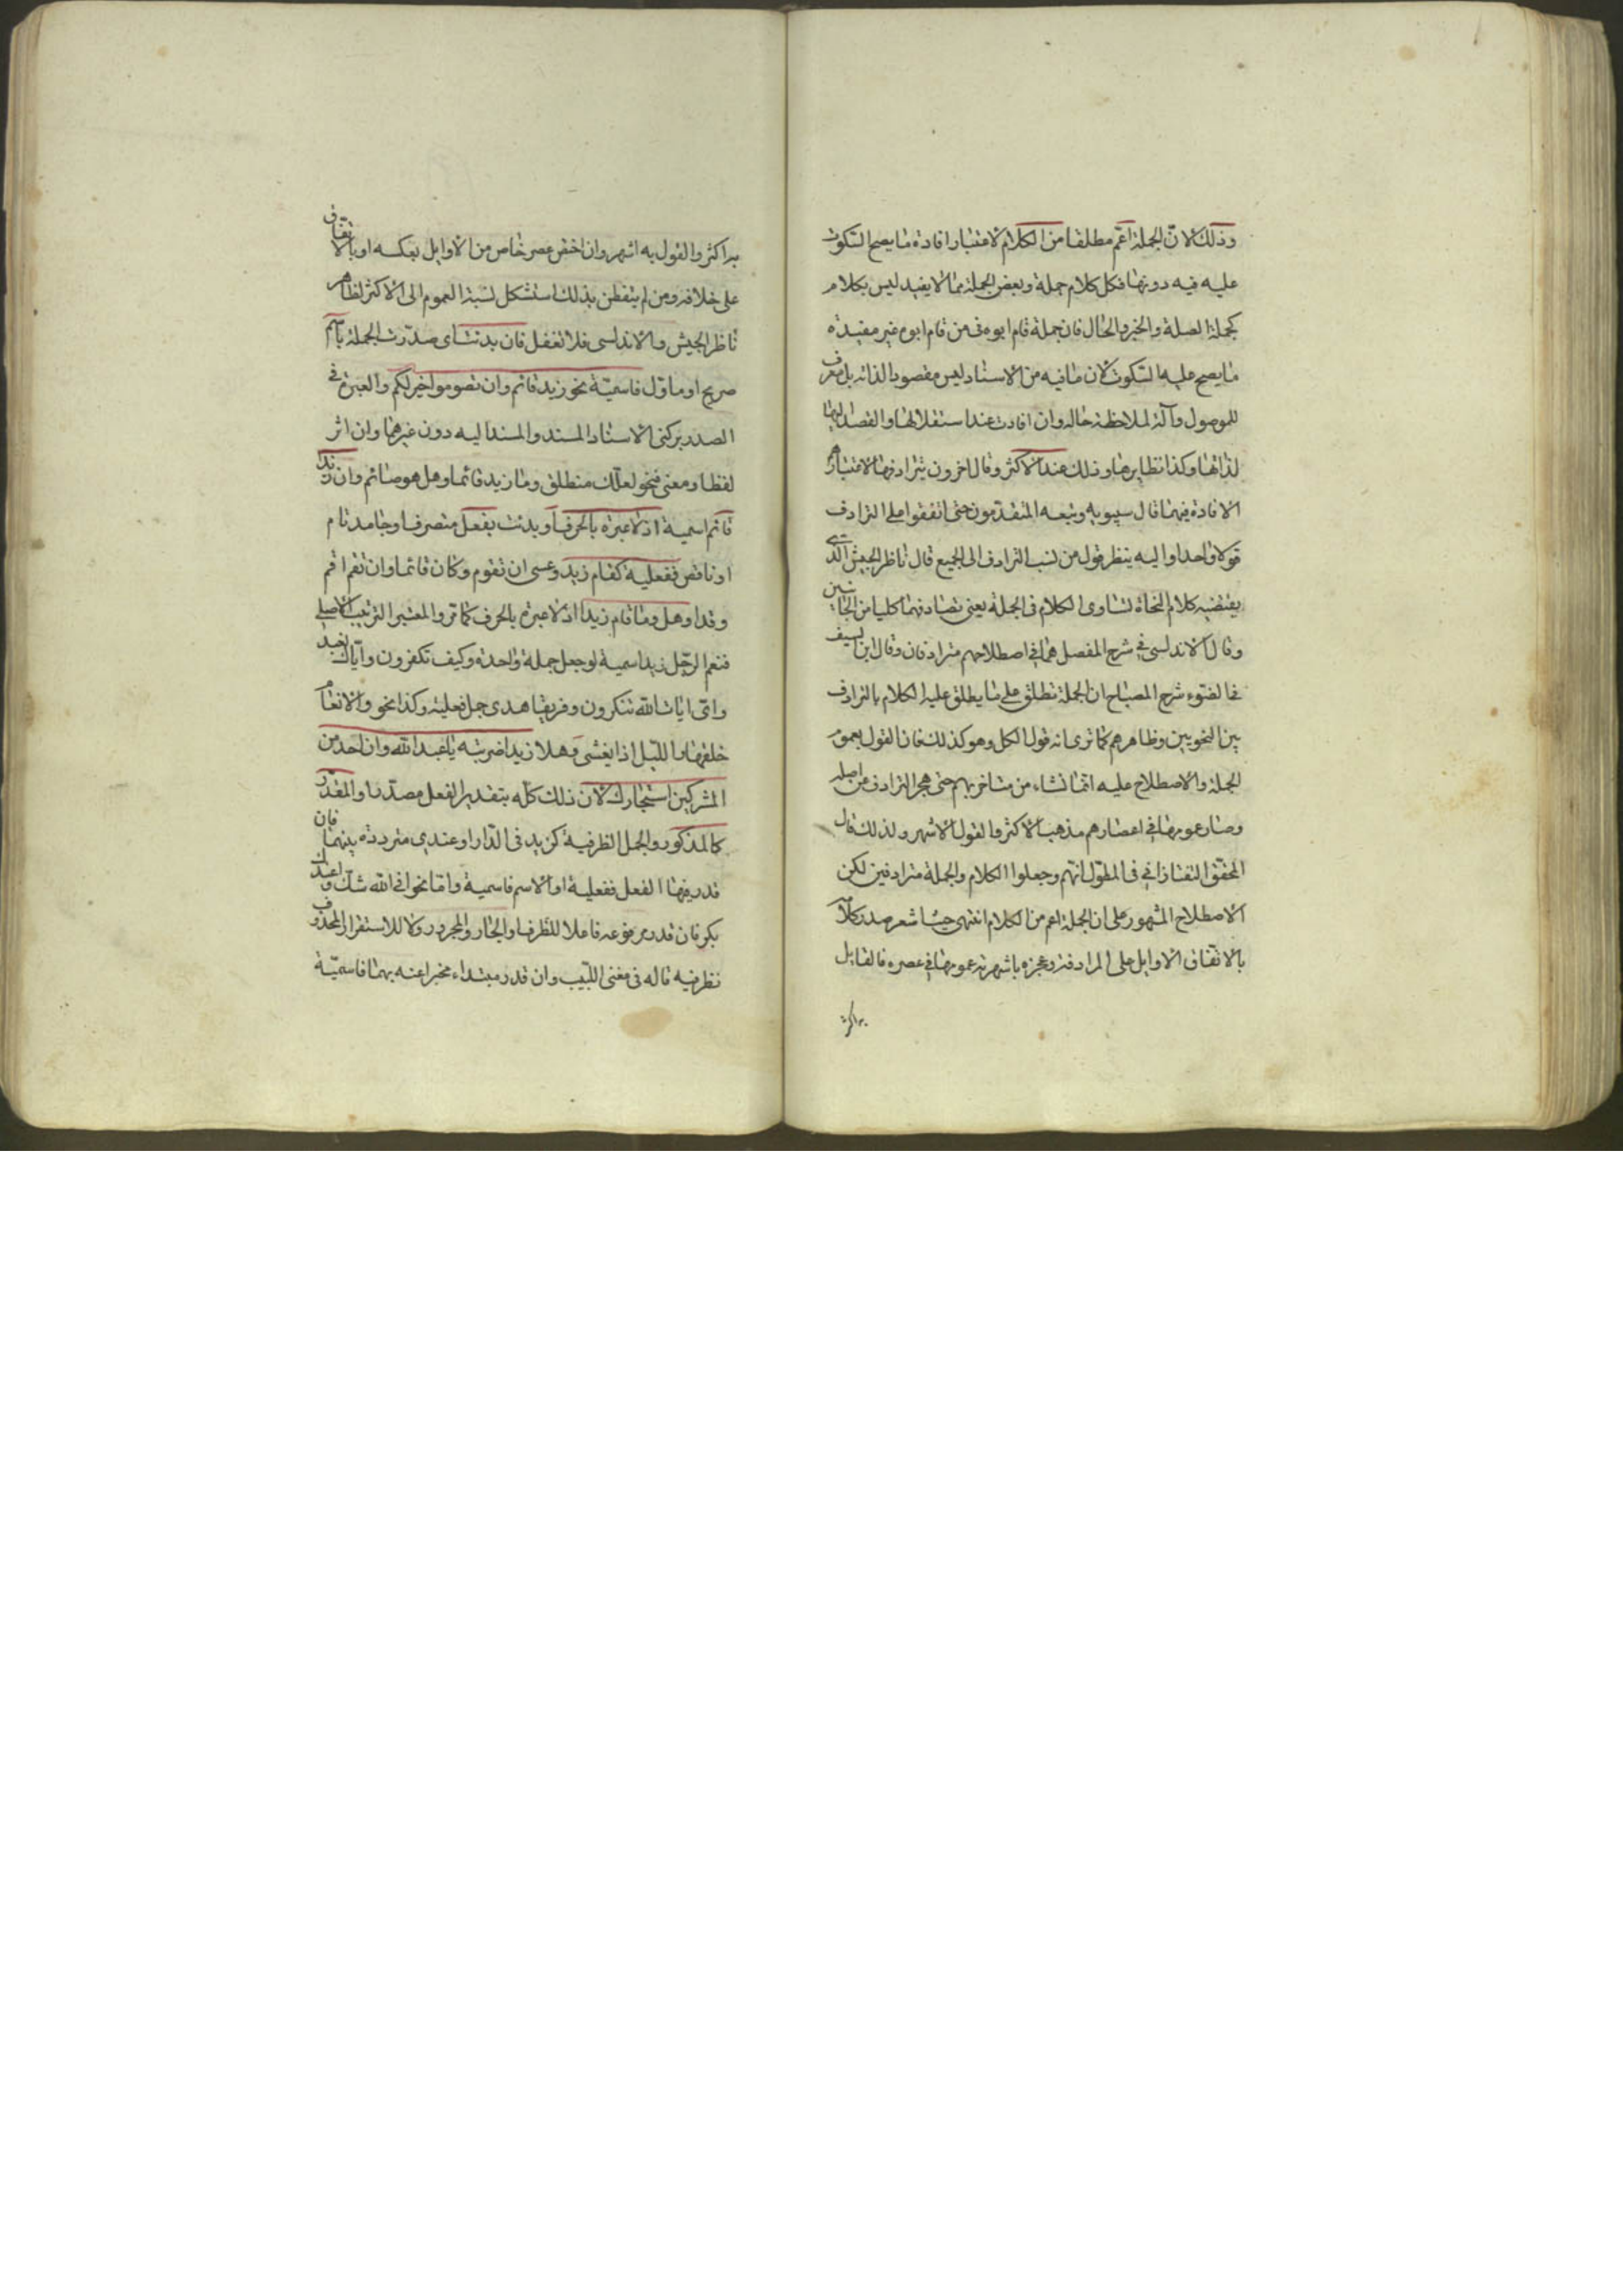 وذلك لان الجملة اعم مطلقا من الكلام لاعتبار افادة ما يصح السكوت
عليه فيه دونها فكل كلام جملة وبعض الجملة مما لا يفيد ليس بكلام
كجملة الصلة والخبر والحال فان جملة قام ابوه في من قام ابوه غير مفيدة
ما يصح عليه السكوت لان ما فيه من الاسناد ليس مقصود الذاته بل معرف
للموصول وآلة لملاحظة حاله وان افادت عند استقلالها والقصد اليها
لذاتها وكذا نظايرها وذلك عند الاكثر وقال اخرون بترادفها لاعتبارهم
الافادة فيهما قال سيبويه وتبعه المتقدمون حتى اتفقوا على الترادف
قولا واحدا واليه ينظر قول من نسب الترادف الى الجميع قال ناظر الجيش الذي
يقتضيه كلام النحاة تساوى الكلام في الجملة يعني تصادقهما كليا من الجانبين
وقال الاندلسي في شرح المفصل هما في اصطلاحهم مترادفان وقال ابن السيف
في الضوء شرح المصباح ان الجملة تطلق على ما يطلق عليه الكلام بالترادف
بين النحويين وظاهرهم كما ترى انه قول الكل وهو كذلك فان القول بعموم
الجملة والاصطلاح عليه انما نشاء من متاخريهم حتى هجر الترادف عن اصله
وصار عمومها في اعصارهم مذهب الاكثر والقول الاشهر ولذلك قال
المحقق التفتازاني في المطول انهم وجعلوا الكلام والجملة مترادفين لكن
الاصطلاح المشهور على ان الجملة اعم من الكلام انتهى حيث اشعر صدر كلامه
بالاتفاق الاوايل على المرادفة وعجزه باشهرية عمومها في عصره فالقايل
به اكثر
به اكثر والقول به اشهر وان اختص عصر خاص من الاوايل بعكسه او بالاتفاق
على خلافه ومن لم يتفطن بذلك استشكل نسبة العموم الى الاكثر لظاهر
ناظر الجيش والاندلسي فلا تغفل فان بدئت اى صدرت الجملة باسم
صريح او ماول فاسمية نحو زيد قائم وان تصوموا خير لكم والعبرة في
الصدر بركنى الاسناد المسند والمسند اليه دون غيرهما وان اثر
لفظا ومعنى فنحو لعلك منطلق وما زيد قائما وهل هو صائم وان زيدا
قائم اسمية اذ لا عبرة بالحرف او بدئت بفعل متصرف او جامد تام
او ناقص ففعلية كقام زيد وعسى ان تقوم وكان قائما وان تقم اقم
وقد او هل وما قام زيد اذ لا عبرة بالحرف كما تر والمعتبر الترتيب الاصلي
فنعم الرجل زيد اسمية لو جعل جملة واحدة وكيف تكفرون واياك نعبد
واى ايات الله تنكرون وفريقا هدى جمل فعلية وكذا نحو والانعام
خلقها والليل اذا يغشى وهلا زيدا ضربته يا عبد الله وان احد من
المشركين استجارك لان ذلك كله بتقدير الفعل مصدرا والمقدر
كالمذكور والجمل الظرفية كزيد في الدار او عندي مترددة بينهما فان
قدر فيها الفعل ففعلية او الاسم فاسمية واما نحو افي الله شك واعندك
بكر فان قدر مرفوعه فاعلا للظرف او الجار والمجرور ولا للاستقرار المحذوف
فظرفيه قاله في مغنى اللبيب وان قدر مبتداء مخبرا عنه بهما فاسمية